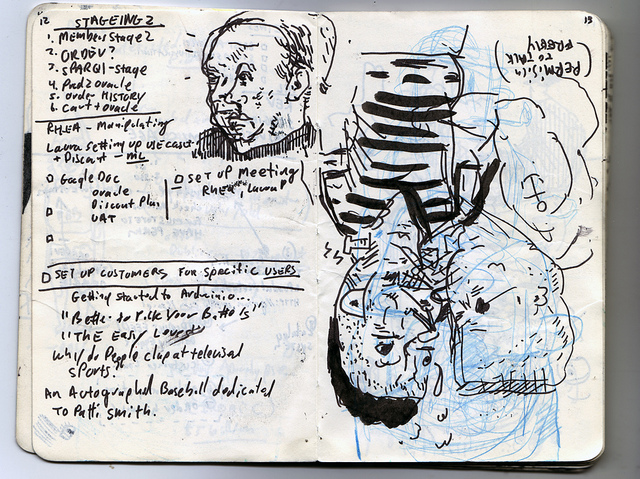 12
STAGEING 2
1. Members Stage 2
2. ORDEV?
3. SPARQL-stage
4. Prod 2 oracle
5. order HISTORY
6. Cart + oracle
RHEA - Manipulating
Laura Setting up USE cases
+ Discount - MIL
Google Doc
oracle
Discount Plus
UAT
SET UP Meeting
RHEA, Laura
SET UP CUSTOMERS FOR SPECIFIC USERS
Getting started to Arduinio...
"Better to Pick Your Battles"
"THE Easy Lovest"
Why do People clap at televised
Sports.
An Autographed Baseball dedicated
To Patti Smith.
13
(PERMISSION
TO TALK
FREELY)